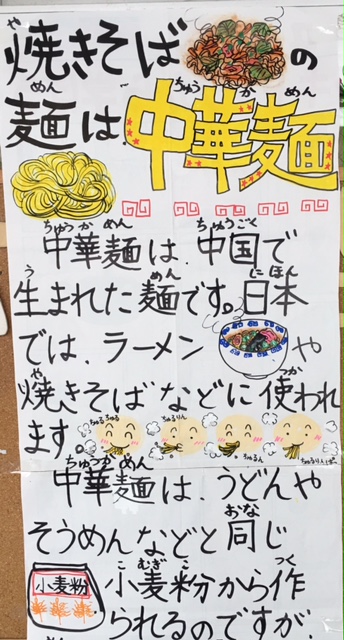 焼きそばの
麺は中華麺
中華麺は、中国で
生まれた麺です。日本
では、ラーメンや
焼きそばなどに使われ
ます。
ちゅるちゅる
ちゅるりん
ちゅるん
ちゅるりんぱ
中華麺は、うどんや
そうめんなどと同じ
小麦粉
小麦粉から作
られるのですが